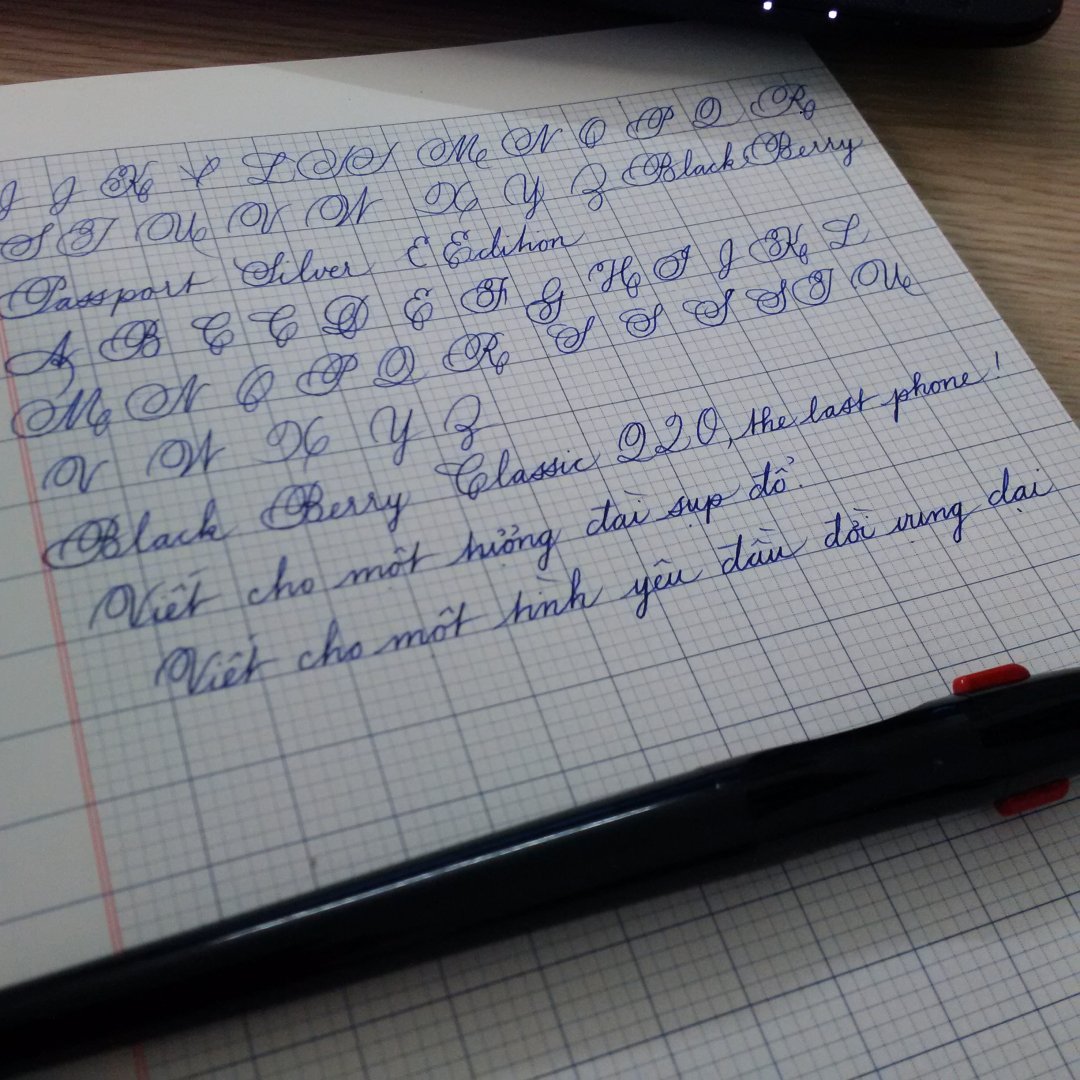 I J K L L N N M N O P Q R
S T U V W X Y Z Black Berry
Passport Silver E Edition
A B C C D E F G H I J K L
M N O P Q R S S S S T U
V W X Y Z
Black Berry Classic Q20, the last phone!
Viết cho một tượng đài sụp đổ.
Viết cho một tình yêu đầu đời vụng dại